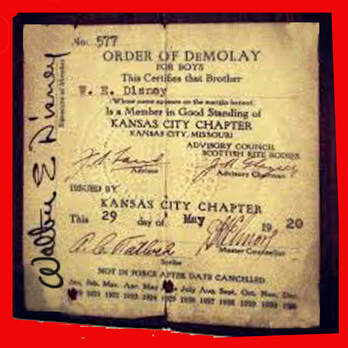 No. 577
ORDER OF DeMOLAY
FOR BOYS
This Certifies that Brother
W. E. Disney
Whose name appears on the margin hereof,
Is a Member in Good Standing of
KANSAS CITY CHAPTER
KANSAS CITY, MISSOURI
ADVISORY COUNCIL
SCOTTISH RITE BODIES
Advisor
Advisory Chairman
ISSUED BY
KANSAS CITY CHAPTER
This 29 day of May 1920
Scribe
Master Councilor
NOT IN FORCE AFTER DATE CANCELLED
Jan. Feb. Mar. Apr. May July Aug. Sept. Oct. Nov. Dec.
Walter E Disney
Signature of Member